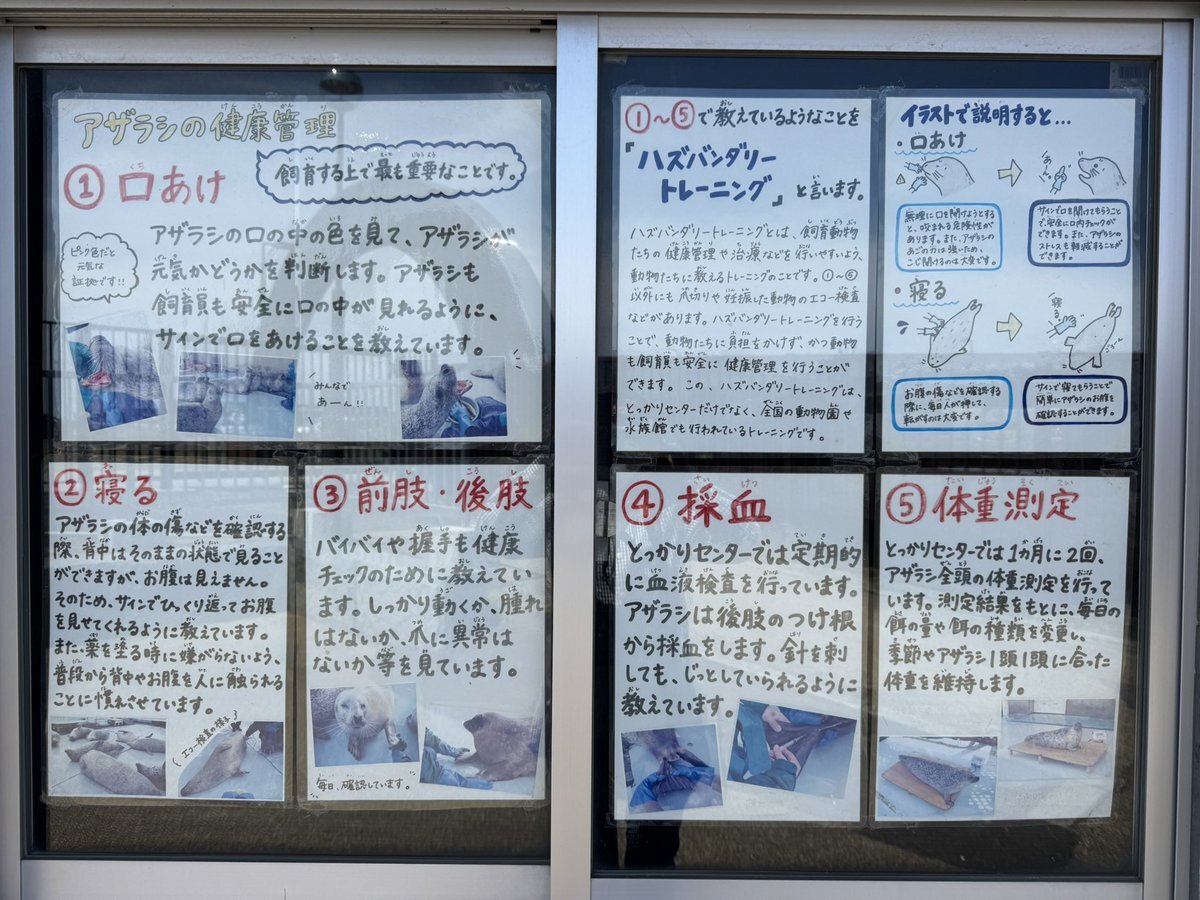 アザラシの健康管理
① 口あけ
飼育する上で最も重要なことです。
ピンク色だと
元気な
証拠です!!
アザラシの口の中の色を見て、アザラシが
元気かどうかを判断します。アザラシも
飼育員も安全に口の中が見れるように、
サインで口をあけることを教えています。
みんなで
あーん!!
② 寝る
アザラシの体の傷などを確認する
際、背中はそのままの状態で見ること
ができますが、お腹は見えません。
そのため、サインでひっくり返ってお腹
を見せてくれるように教えています。
また、薬を塗る時に嫌がらないよう、
普段から背中やお腹を人に触られる
ことに慣れさせています。
エコー検査の様子
③ 前肢・後肢
バイバイや握手も健康
チェックのために教えてい
ます。しっかり動くか、腫れ
はないか、爪に異常は
ないか等を見ています。
毎日、確認しています。
①〜⑤で教えているようなことを
『ハズバンダリー
トレーニング』と言います。
ハズバンダリートレーニングとは、飼育動物
たちの健康管理や治療などを行いやすいよう、
動物たちに教えるトレーニングのことです。①〜⑤
以外にも爪切りや妊娠した動物のエコー検査
などがあります。ハズバンダリートレーニングを行う
ことで、動物たちに負担をかけず、かつ動物
も飼育員も安全に健康管理を行うことが
できます。この、ハズバンダリートレーニングは、
とっかりセンターだけでなく、全国の動物園や
水族館でも行われているトレーニングです。
イラストで説明すると...
・口あけ
あーん
無理に口を開けようとする
と、咬まれる危険性が
あります。また、アザラシの
あごの力は強いため、
こじ開けるのは大変です。
サインで口を開けてもらうこと
で、安全に口内チェックが
できます。また、アザラシの
ストレスも軽減することが
できます。
・寝る
寝る
ごろーん
お腹の傷などを確認する
際に、毎日人が押して、
転がすのは大変です。
サインで寝てもらうことで
簡単にアザラシのお腹を
確認することができます。
④ 採血
とっかりセンターでは定期的
に血液検査を行っています。
アザラシは後肢のつけ根
から採血をします。針を刺
しても、じっとしていられるように
教えています。
⑤ 体重測定
とっかりセンターでは1カ月に2回、
アザラシ全頭の体重測定を行って
います。測定結果をもとに、毎日の
餌の量や餌の種類を変更し、
季節やアザラシ1頭1頭に合った
体重を維持します。